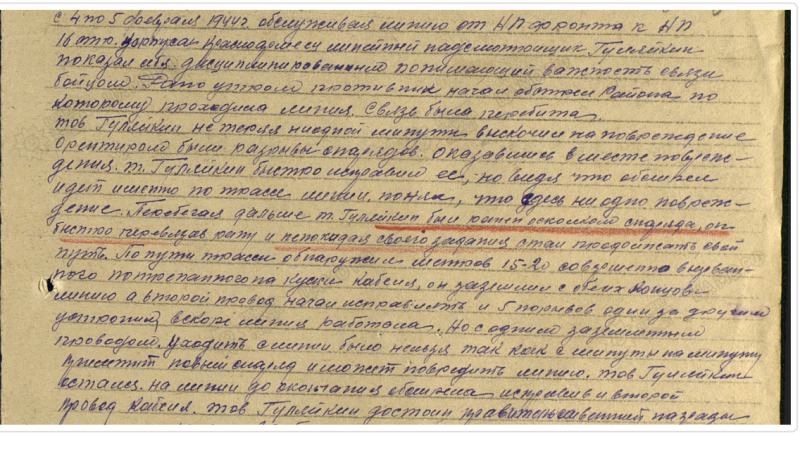 с 4 по 5 февраля 1944 г. обслуживая линию от НП фронта к НП
16 отд. корпуса Краснодемск линейный надсмотрщик Гуляйкин
показал себя дисциплинированным понимающий важность связи
бойцом. Рано утром противник начал обстрел района по
которому проходила линия. Связь была перебита.
тов Гуляйкин не теряя ни одной минуты выскочил на повреждение
ориентиром были разрывы снарядов. Оказавшись в месте повреж-
дения. т. Гуляйкин быстро исправил ее, но видя что обстрел
идет именно по трассе линии, понял, что здесь ни одно повреж-
дение. Перебегая дальше т. Гуляйкин был ранен осколком снаряда, он
быстро перевязав рану и непокидая своего задания стал продолжать свой
путь. По пути трассы обнаружил метров 15-20 совершенно вырван-
ного потрепанного на куски кабеля, он заземлил с обеих концов
линию а второй провод начал исправлять и 5 порывов один за другим
устранил, вскоре линия работала. Но с одним заземленным
проводом. Уходить с линии было нельзя так как с минуты на минуту
прилетит новый снаряд и может повредить линию. тов Гуляйкин
остался на линии до окончания обстрела исправив и второй
провод кабеля. тов Гуляйкин достоин правительственной награды